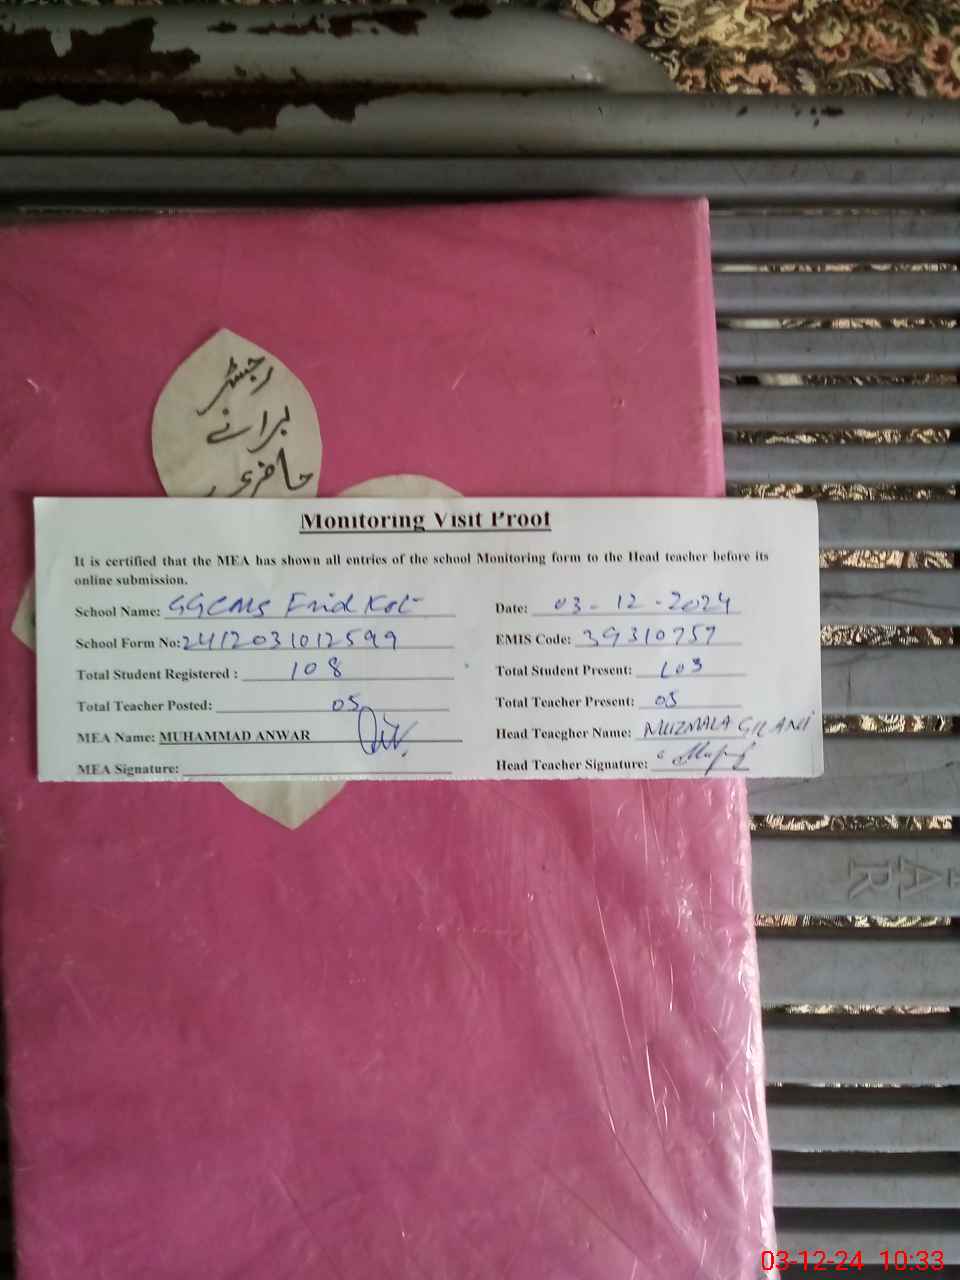 رجسٹر
برائے
حاضری
Monitoring Visit Proof
It is certified that the MEA has shown all entries of the school Monitoring form to the Head teacher before its
online submission.
School Name: GGCMS Frid Kot Date: 03-12-2024
School Form No: 2412031012599 EMIS Code: 39310757
Total Student Registered : 108 Total Student Present: 103
Total Teacher Posted: 05 Total Teacher Present: 05
MEA Name: MUHAMMAD ANWAR Head Teacgher Name: MUZMALA GILANI
MEA Signature: Head Teacher Signature:
AR
03-12-24 10:33